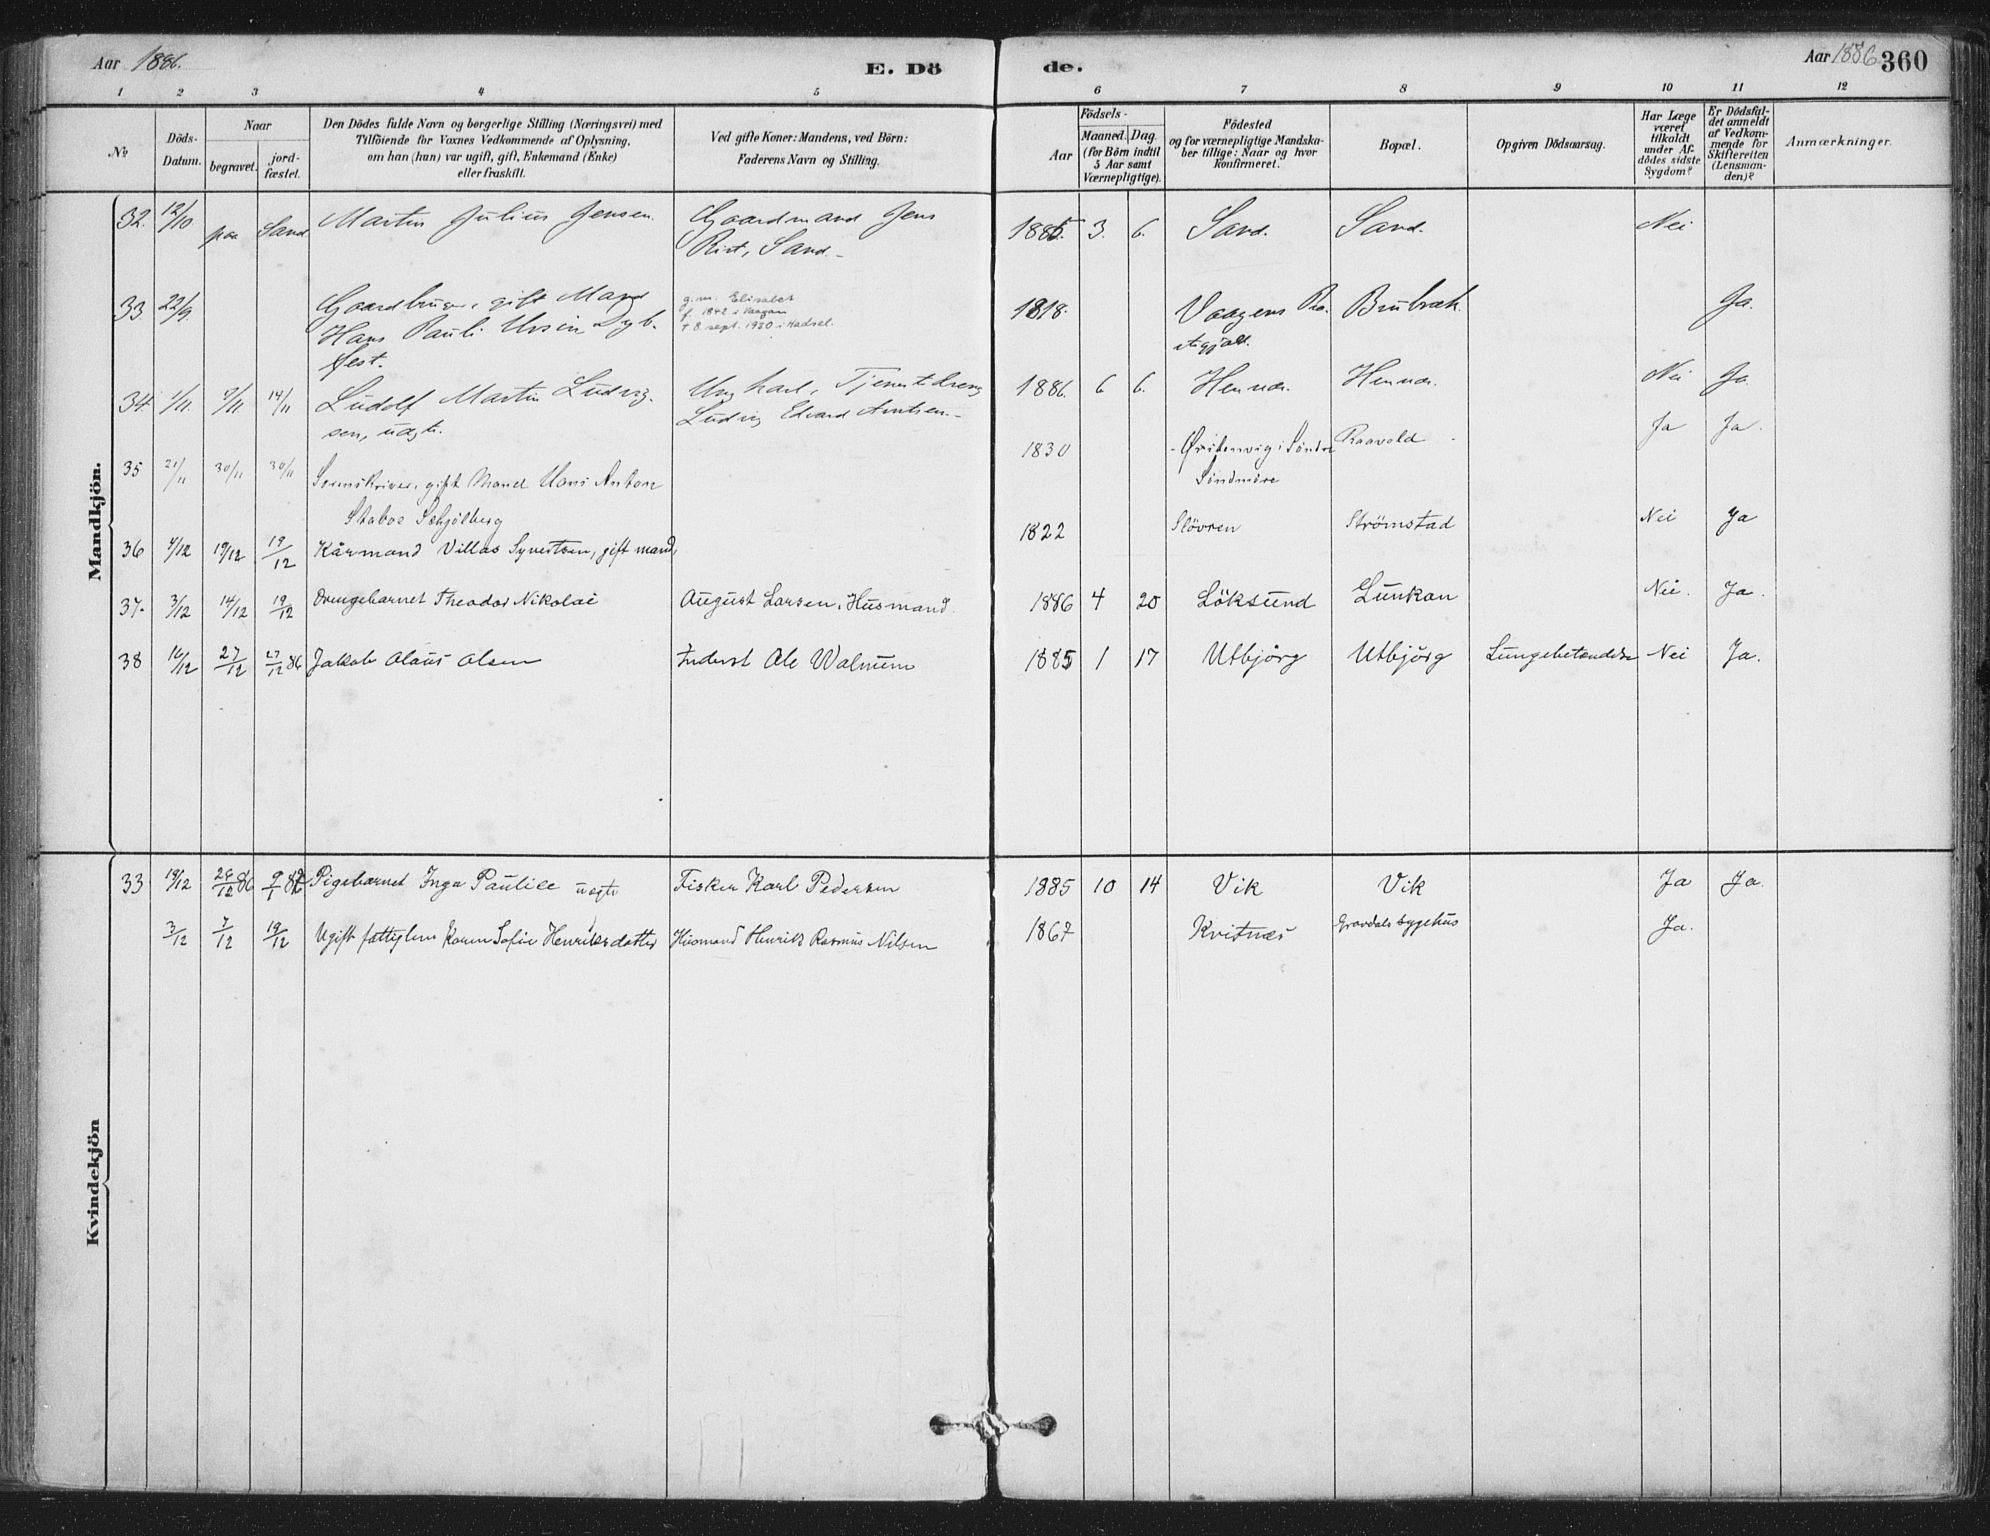 Aar 1886.
E. Dö
de.
Aar 1886
360
1 2 3 4 5 6 7 8 9 10 11 12
No
Döds-
Datum.
Naar
begravet.
jord-
fæstet.
Den Dödes fulde Navn og borgerlige Stilling (Næringsvei) med
Tilföiende for Voxnes Vedkommende af Oplysning,
om han (hun) var ugift, gift, Enkemand (Enke)
eller fraskilt.
Ved gifte Koner: Mandens, ved Börn:
Faderens Navn og Stilling.
Födsels-
Aar
Maaned.
Dag.
(for Börn indtil
5 Aar samt
Værnepligtige).
Födested
og for værnepligtige Mandska-
ber tillige: Naar og hvor
konfirmeret.
Bopæl.
Opgiven Dödsaarsag.
Har Læge
været
tilkaldt
under Af-
dödes sidste
Sygdom?
Er Dödsfal-
det anmeldt
af Vedkom-
mende for
Skifteretten
(Lensman-
den)?
Anmærkninger.
Mandkjön.
32. 12/10 paa Sand Martin Julius Jensen. Gaardmand Jens 1885. 3. 6. Sand. Sand. Nei
Rist, Sand.
33. 22/9. Gaardbruger, gift Mand g.m. Elisabet 1818. Vaagens Præ- Ja.
Hans Pauli Ursin Dyb- f. 1842 i Vaagan stegjæld.
fest. † 8 sept. 1930 i Hadsel.
34. 1/11. 7/11 14/11 Ludolf Martin Ludvig- Ungkarl, Tjenestdreng 1886. 6 6. Nei Ja
sen, uægte. Ludvig Edvard Arntsen.
35 21/11 30/11 30/11 Sorenskriver, gift Mand Hans Anton 1830 Søndre Raavold Ja Ja.
Staboe Schjölberg Søndmöre
36 4/12 19/12 19/12 Kårmand Villas Syvertsen, gift mand, 1822 Slövren Strömstad Nei Ja
37. 3/12 14/12 19/12 Drengebarnet Theodor Nikolai August Larsen, Husmand. 1886 4 20 Löksund Gunkan Nei. Ja.
38 16/12 27/12 27/12 86 Jakob Olaus Olsen Inderst Ole Walnum 1885 1 17 Utbjörg Utbjörg Lungebetændelse Nei Ja.
Kvindekjön
33 19/12 28/12 86 9/1 87 Pigebarnet Inga Pauline uægte Fisker Karl Pedersen 1885 10 14 Vik Vik Ja Ja.
3/12 7/12 19/12 Ugift fattiglem Karen Sofie Henriksdatter Husmand Henrik Rasmus Nilsen 1867 Kvitnæs Gravdals sygehus Ja.